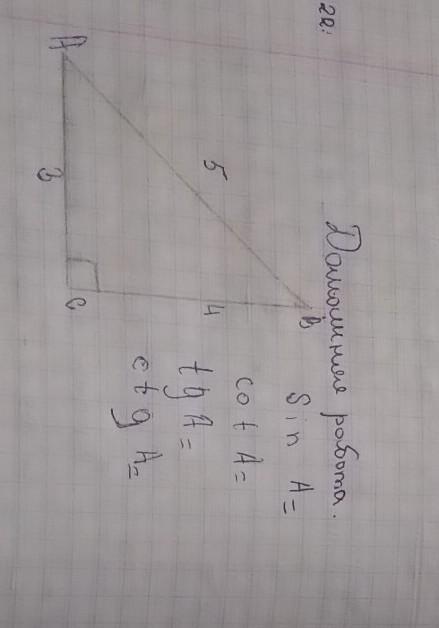 22.
Домашняя работа.
A
5
B
3
4
C
Sin A=
cot A=
tg A=
ctg A=